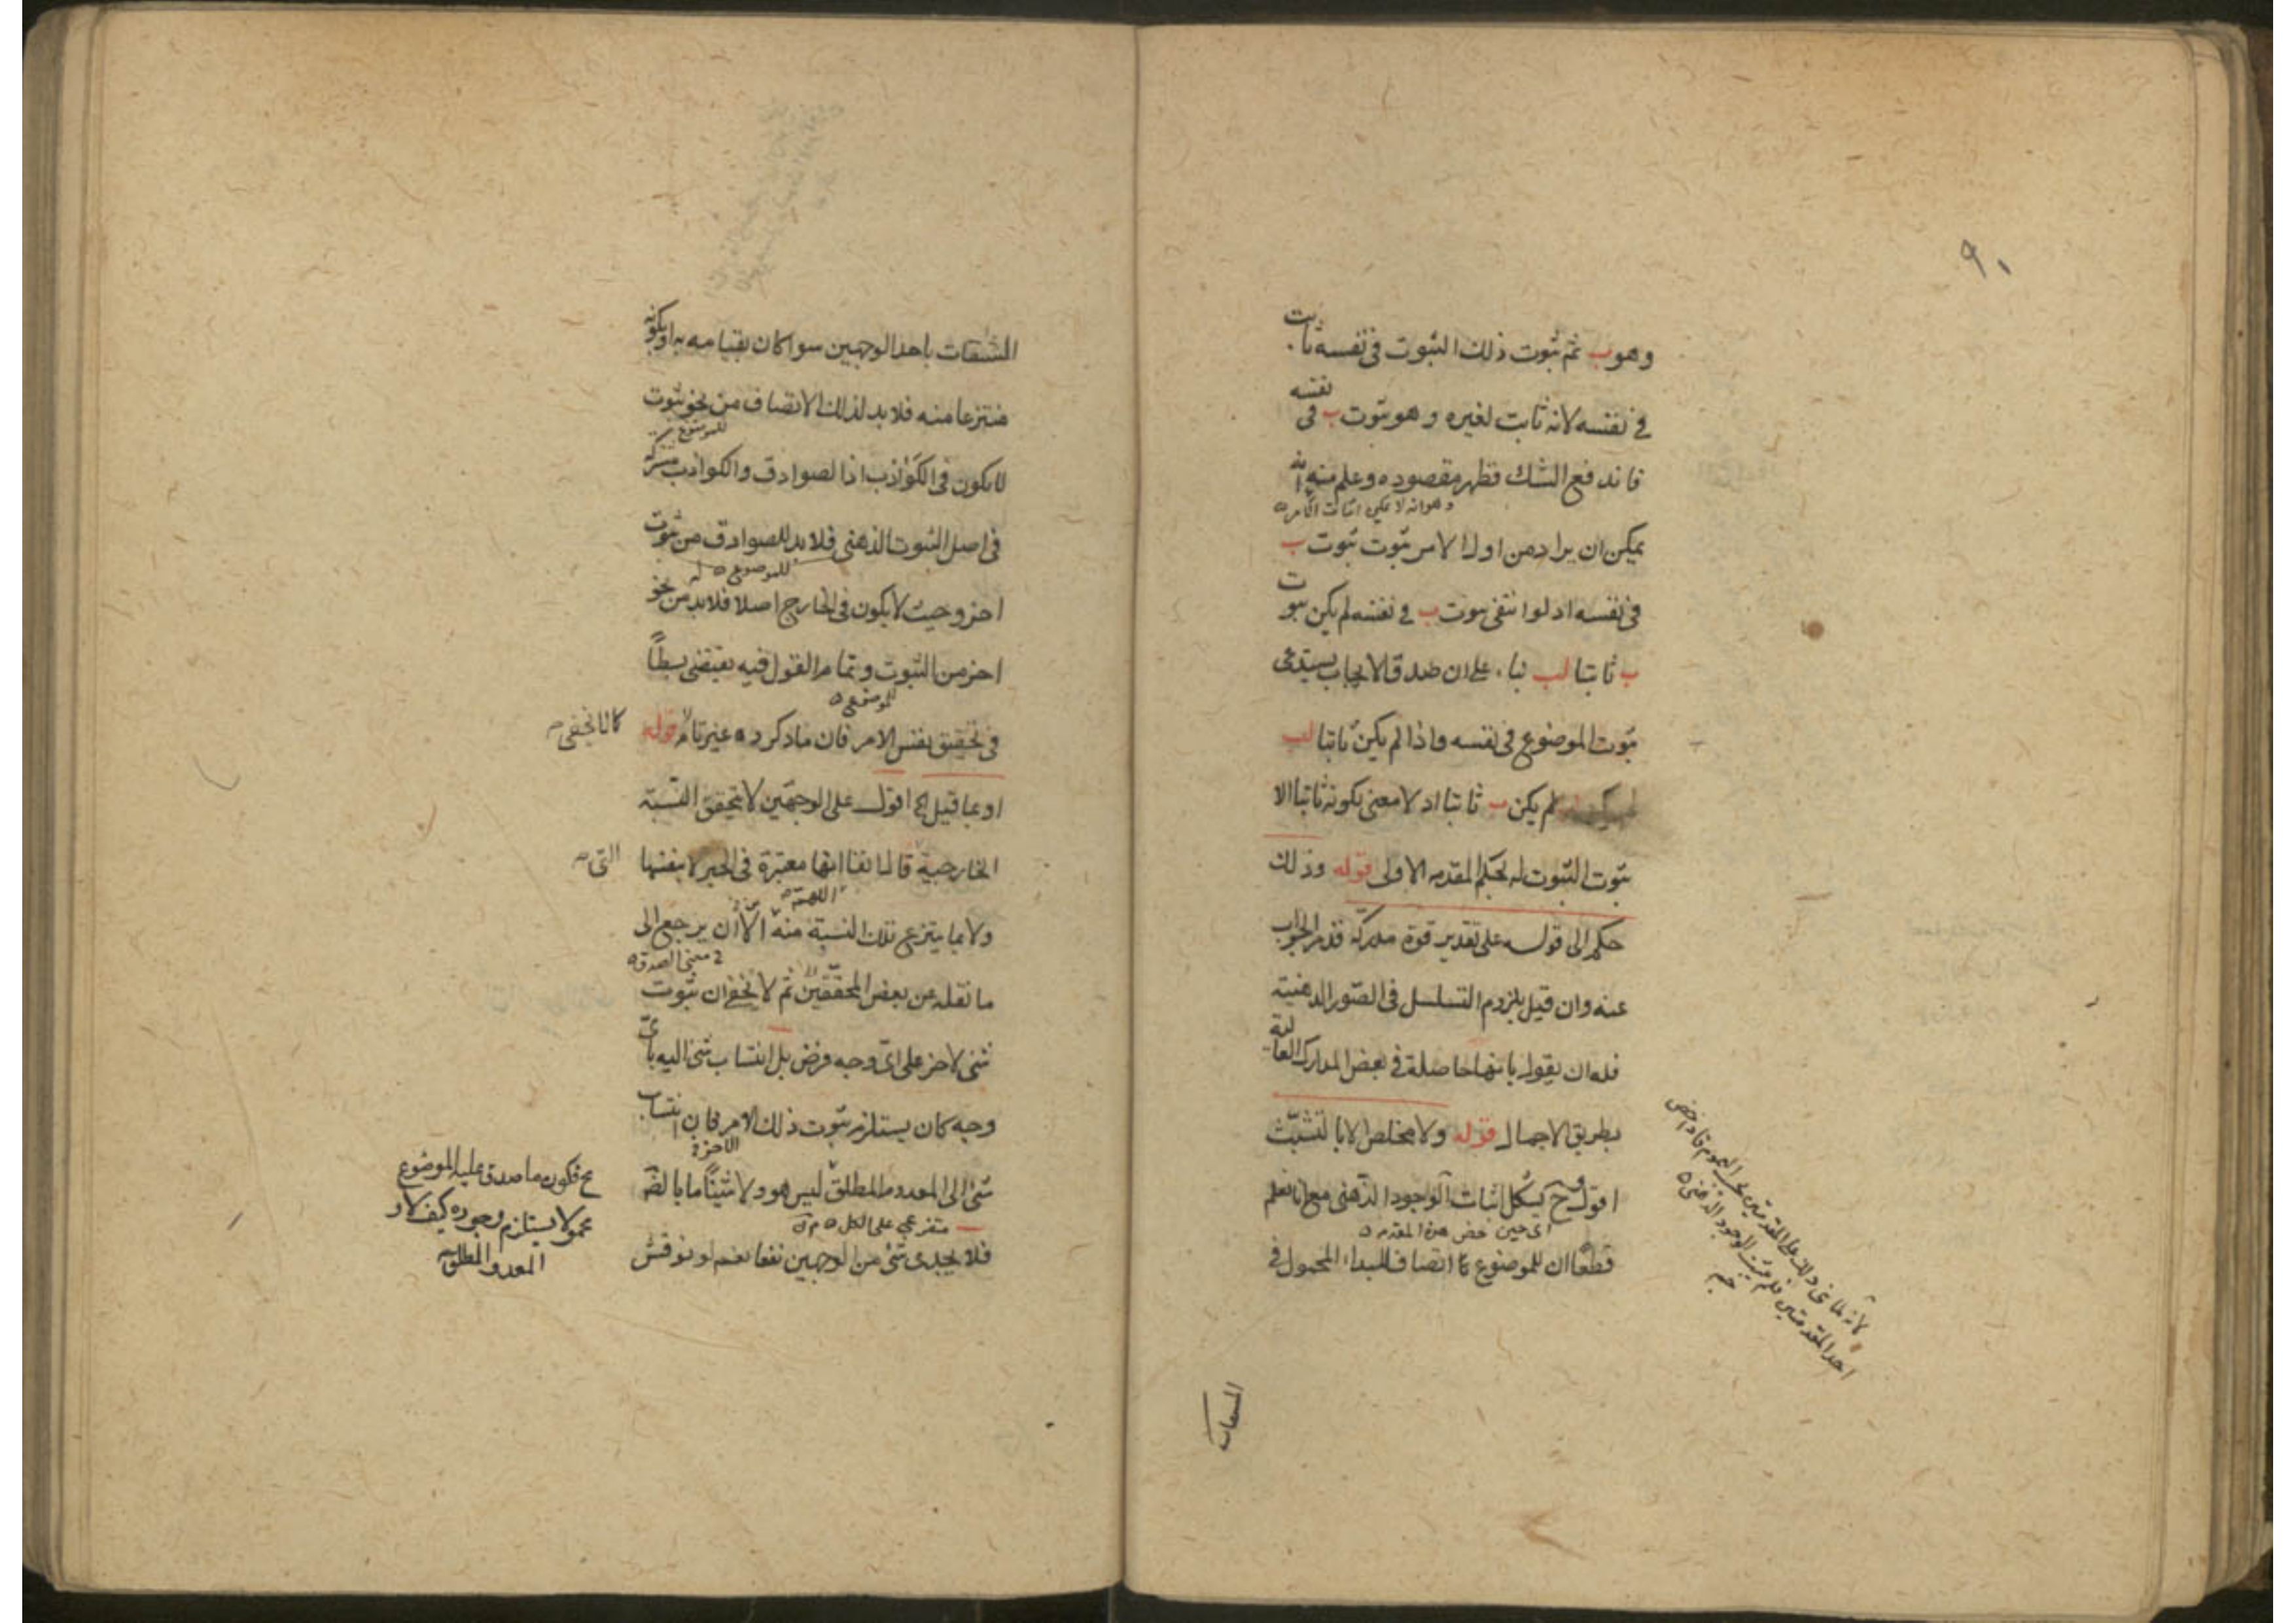 ٩٠
وهو ب ثم ثبوت ذلك الثبوت في نفسه ثابت
في نفسه لانه ثابت لغيره وهو ثبوت ب في نفسه
فاندفع الشك فظهر مقصوده وعلم منه انه
وهو انه لا يمكن اثبات
يمكن ان يراد من اول الامر ثبوت ثبوت ب
في نفسه اذ لو انتفى ثبوت ب في نفسه لم يكن ثبوت
ب ثابتا لب على ان صدق الايجاب يستدعى
ثبوت الموضوع في نفسه واذا لم يكن ثابتا لب
لم يكن ب ثابتا اذ لا معنى لكونه ثابتا الا
ثبوت الثبوت له بحكم المقدمه الاولى قوله وذلك
حكم الى قوله على تقدير قوة مدركة قد مر الجواب
عنه وان قيل يلزم التسلسل في الصور الذهنية
فله ان يقول بانها حاصلة في بعض المدارك العالية
بطريق الاجمال قوله ولا مخلص الا بالتشبث
اقول وح يشكل اثبات الوجود الذهنى مع انا نعلم
اى حين خص هذه المقدمه
قطعا ان للموضوع اتصافا لمبداء المحمول في
المشتقات
المشتقات باحد الوجهين سوا كان بقيامه به او بكونه
منتزعا منه فلا بد لذلك الاتصاف من نحو ثبوت
للموضوع
لا يكون في الكواذب اذ الصوادق والكواذب مشتركة
في اصل الثبوت الذهنى فلا بد للصوادق من ثبوت
للموضوع
اخر وحيث لا يكون في الخارج اصلا فلا بد له من نحو
اخر من الثبوت وتمام القول فيه يقتضى بسطا
للموضوع
في تحقيق نفس الامر فان ما ذكرده غير تام قوله
كما لا يخفى
او عما قيل الخ اقول على الوجهين لا تتحقق النسبة
الخارجية قالما نفا انها معتبرة في الخبر لا بنفسها
التى
اللهم
ولا بما ينتزع تلك النسبة منه الا ان يرجع الى
معنى الصدق
ما نقله عن بعض المحققين ثم لا يخفى ان ثبوت
شئ لاخر على اى وجه فرض بل انتساب شئ اليه باى
وجه كان يستلزم ثبوت ذلك الامر فان انتساب
الاخر
شئ الى المعدوم المطلق ليس هو ولا شيئا ما بالضرورة
متفرع على الكل
فلا يجدى شئ من الوجهين نفعا نعم لو نوقش
ح فكون ما صدق عليه الموضوع
محمولا يستلزم وجوده كيف لا و
المعدوم المطلق